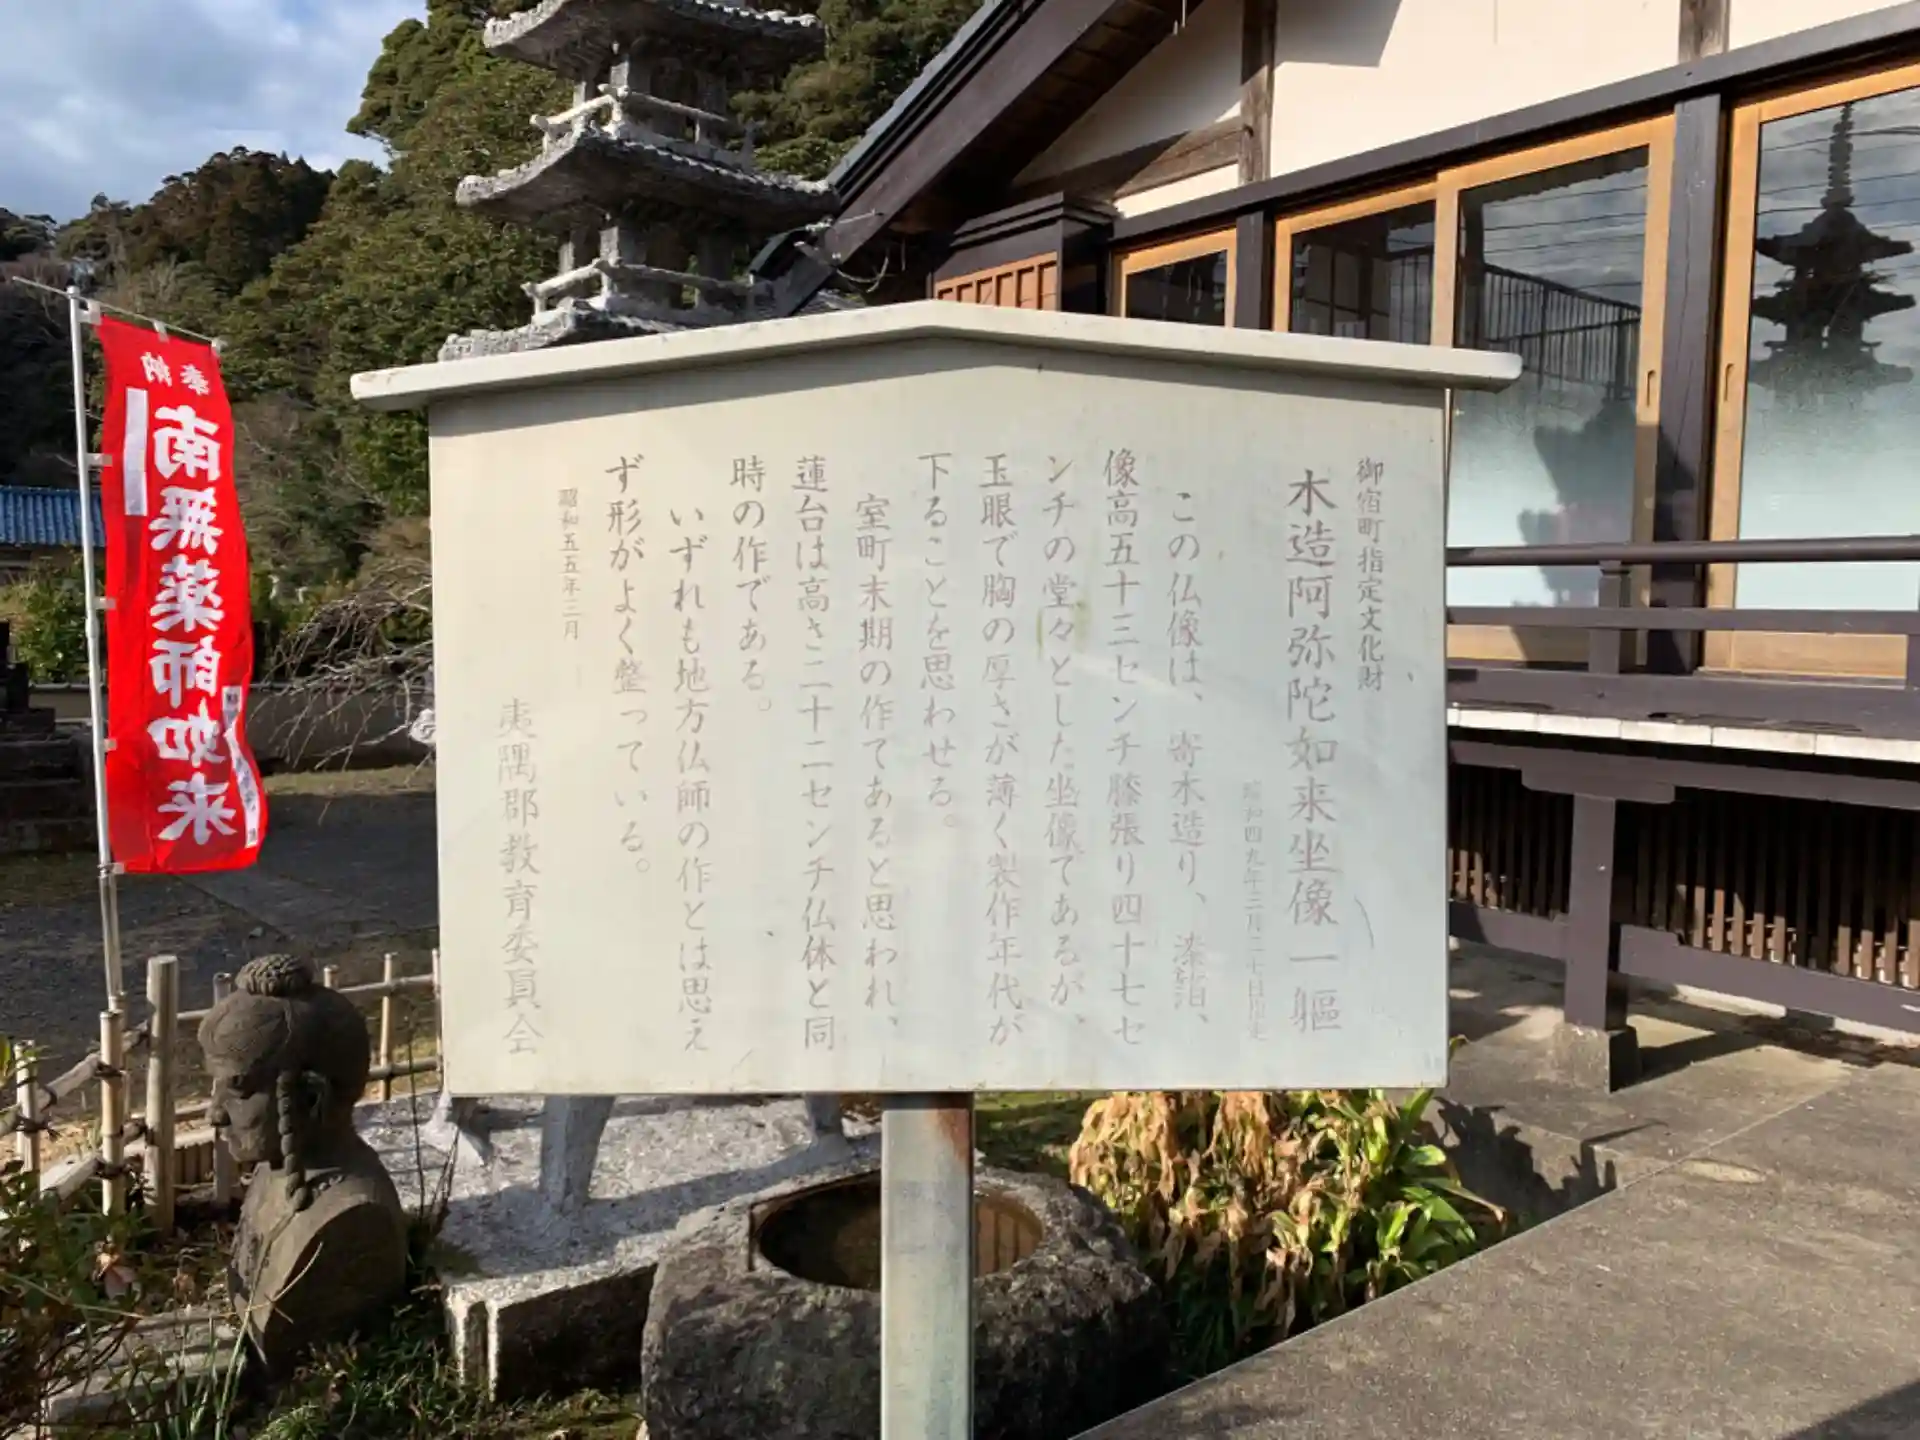 御宿町指定文化財
木造阿弥陀如来坐像一軀
昭和四九年三月二十日指定
この仏像は、寄木造り、漆箔、
像高五十三センチ膝張り四十七セ
ンチの堂々とした坐像であるが、
玉眼で胸の厚さが薄く製作年代が
下ることを思わせる。
室町末期の作てあると思われ、
蓮台は高さ二十二センチ仏体と同
時の作である。
いずれも地方仏師の作とは思え
ず形がよく整っている。
昭和五五年三月
夷隅郡教育委員会
奉納
南無薬師如来